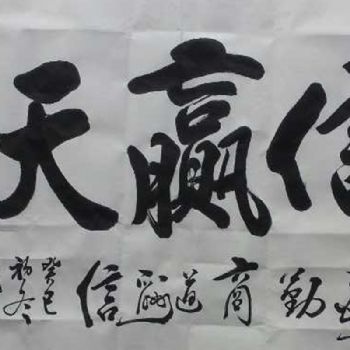 信赢天
勤商道酬信
癸巳
初冬